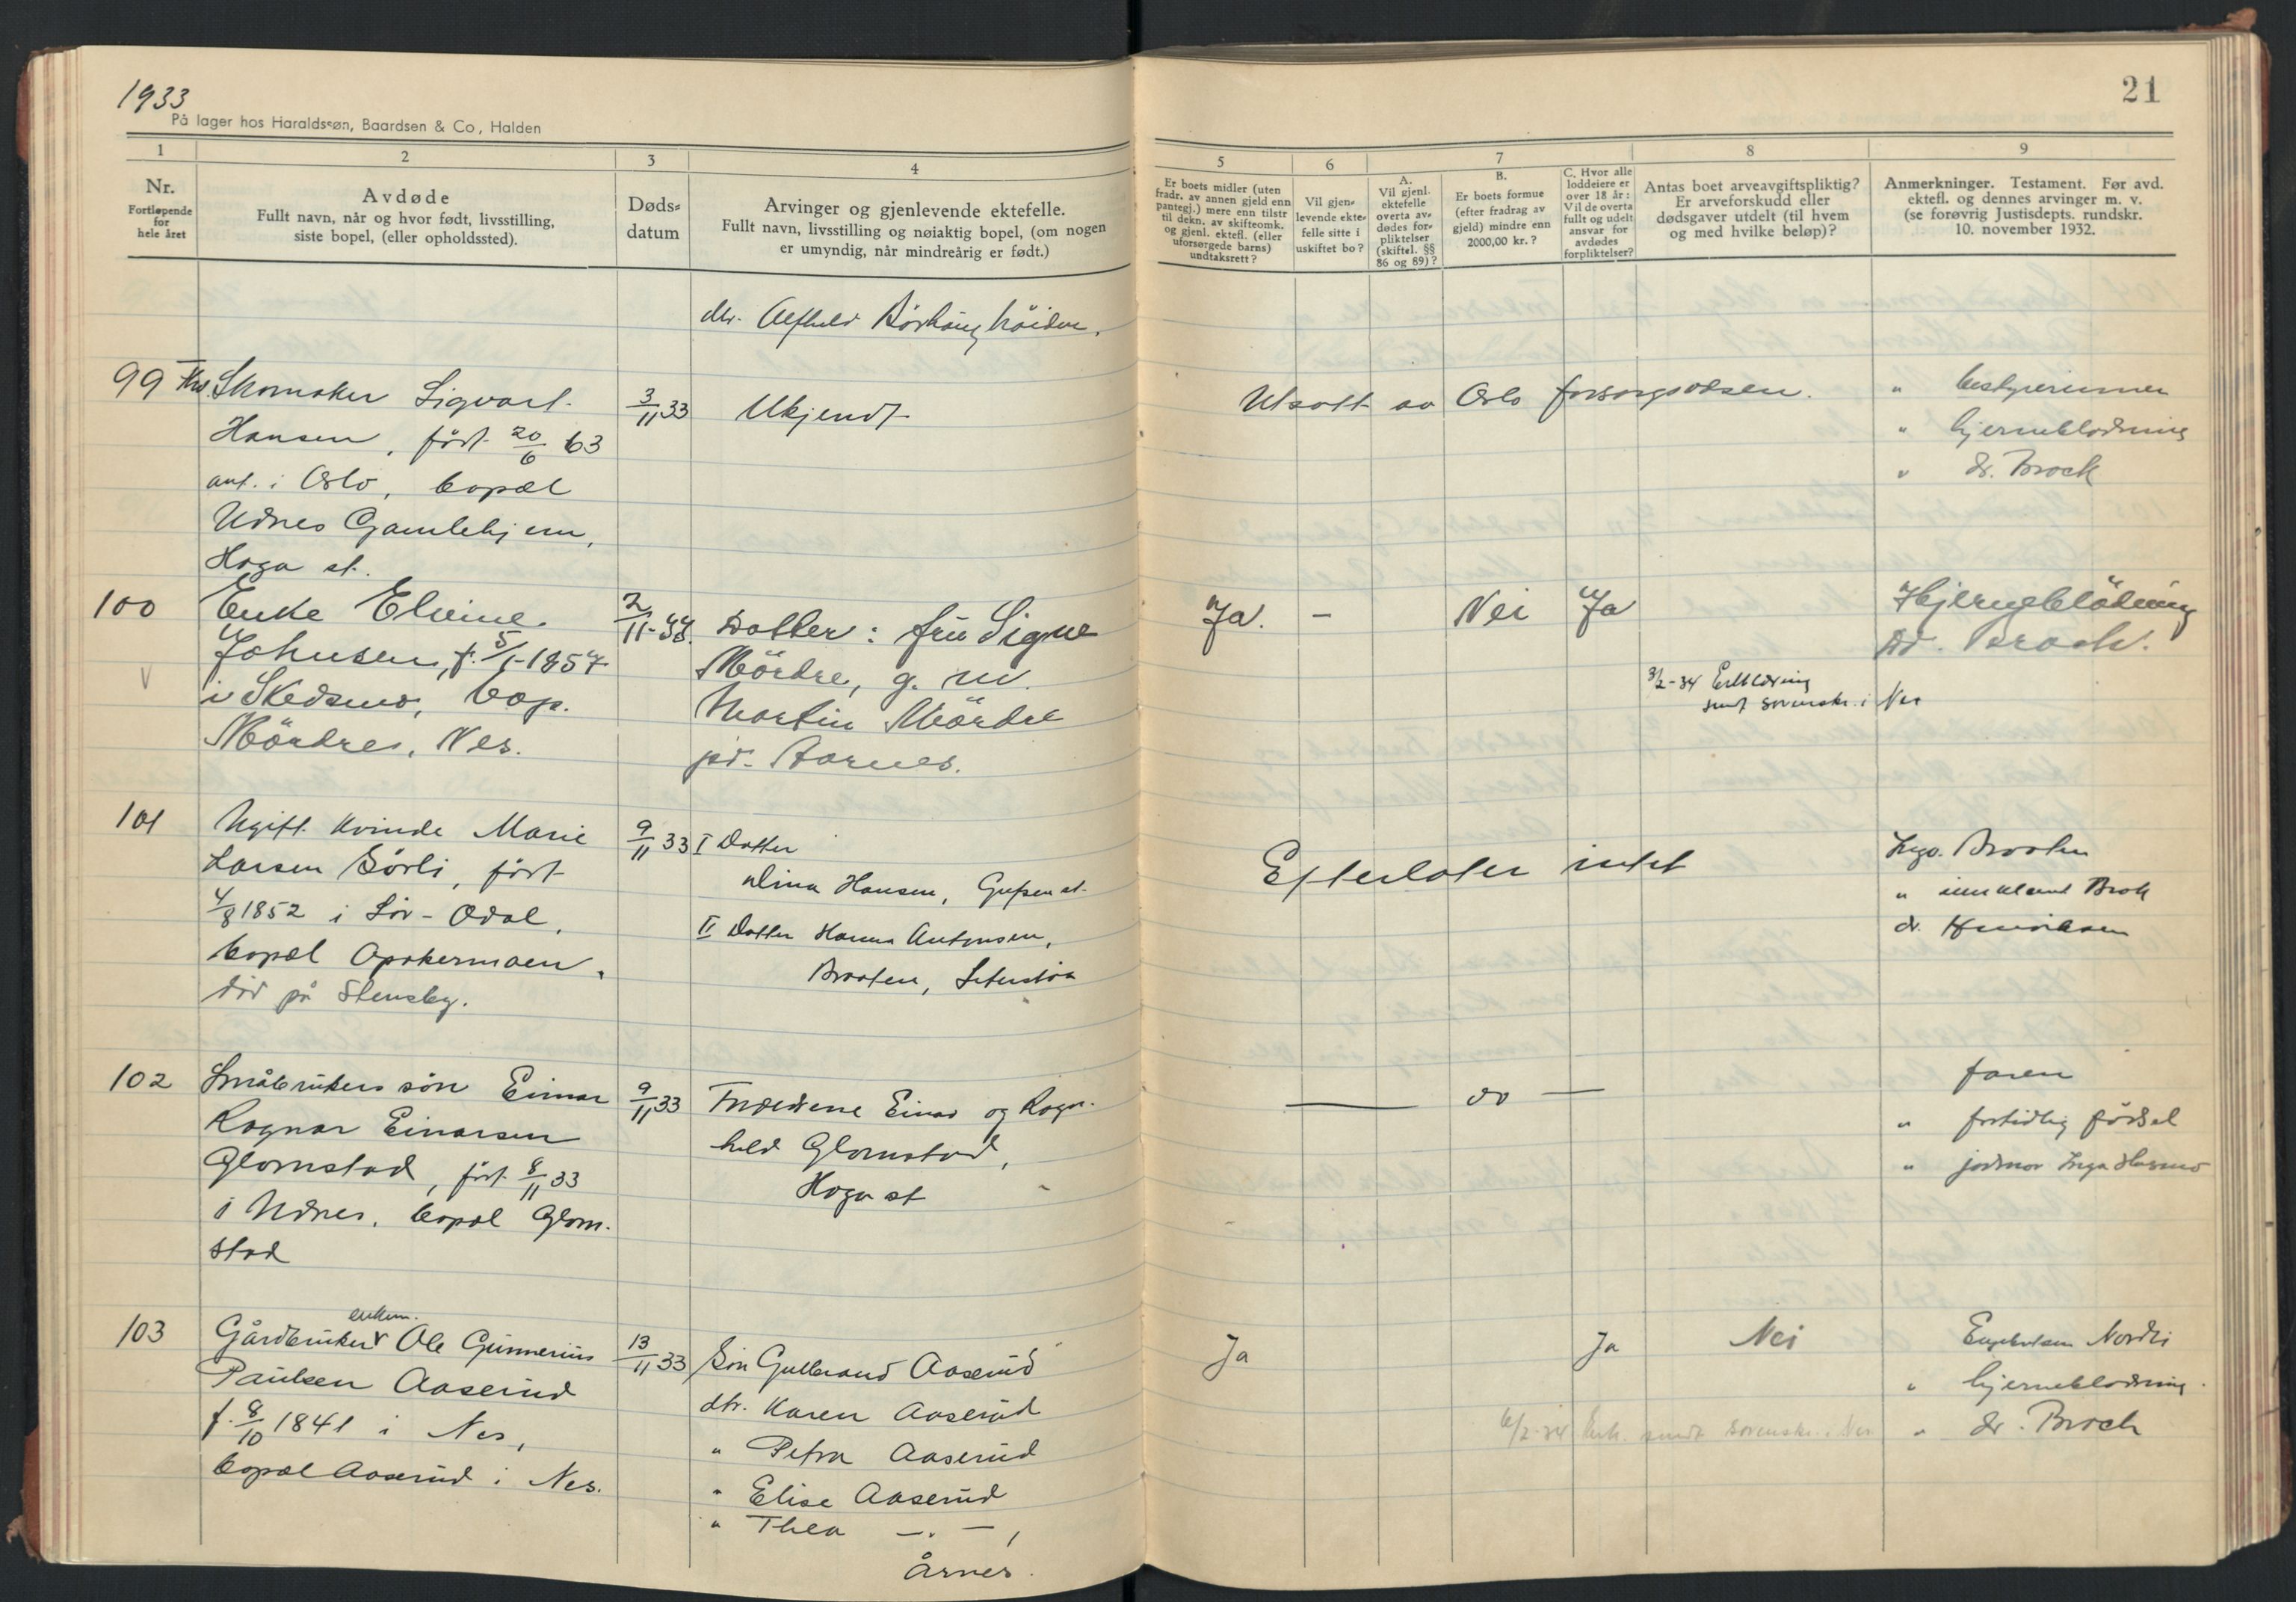 1933
På lager hos Haraldssøn, Baardsen & Co, Halden
1
2
3
4
Nr.
Fortløpende
for
hele året
Avdøde
Fullt navn, når og hvor født, livsstilling,
siste bopel, (eller opholdssted).
Døds-
datum
Arvinger og gjenlevende ektefelle.
Fullt navn, livsstilling og nøiaktig bopel, (om nogen
er umyndig, når mindreårig er født.)
21
5
6
7
8
9
Er boets midler (uten
fradr. av annen gjeld enn
pantegj.) mere enn tilstr.
til dekn. av skifteomk.
og gjenl. ektefl. (eller
uforsørgede barns)
undtaksrett?
Vil gjen-
levende ekte-
felle sitte i
uskiftet bo?
A.
Vil gjenl.
ektefelle
overta av-
dødes for-
pliktelser
(skiftel. §§
86 og 89)?
B.
Er boets formue
(efter fradrag av
gjeld) mindre enn
2000,00 kr.?
C. Hvor alle
loddeiere er
over 18 år:
Vil de overta
fullt og udelt
ansvar for
avdødes
forpliktelser?
Antas boet arveavgiftspliktig?
Er arveforskudd eller
dødsgaver utdelt (til hvem
og med hvilke beløp)?
Anmerkninger. Testament. Før avd.
ektefl. og dennes arvinger m. v.
(se forøvrig Justisdepts. rundskr.
10. november 1932.
99
Skomaker Sigvart
Hansen, født 20/6 63
ant. i Oslo, bopæl
Udnes Gamlehjem,
Haga st.
3/11 33
Ukjendt
Utsatt av Oslo forsorgsvæsen.
" bestyrerinnen
" hjerneblødning
" dr. Brock
100
Enke Elvine
Johnsen, f. 5/1-1857
i Skedsmo, bop.
Mördre, Nes.
2/11-33.
Datter: fru Signe
Mördre, g. m.
Martin Mördre
pr. Aarnes.
Ja.
-
Nei
Ja
3/2-34 Erklæring
sendt sorenskr. i Nes
Hjerneblödning
Dr. Brock.
101
Ugift kvinde Marie
Larsen Sørli, født
4/8 1852 i Sør-Odal,
bopæl Opakermoen,
død på Stensby.
9/11 33
I Datter
Dina Hansen,
II Datter Hanna Antonsen,
Braaten, Seterstøa
Efterlater intet
Braaten
dr. Henriksen
102
Småbrukers søn Einar
Ragnar Einarsen
Glomstad, født 8/11 33
i Udnes, bopæl Glom-
stad
9/11 33
Forældrene Einar og Ragn-
hild Glomstad,
Haga st
— do —
faren
" fortidlig födsel
" jordmor Inga
103
enkem.
Gårdbruker v Ole Gunnerius
Paulsen Aaserud
f. 8/10 1841 i Nes,
bopæl Aaserud i Nes.
13/11 33
Søn Gulbrand Aaserud
dtr. Karen Aaserud
" Petra Aaserud
" Elise Aaserud
" Thea —"—,
Årnes.
Ja
Ja
Nei
6/2-34 Erk. sendt sorenskr. i Nes
Engebretsen Nordli
" hjerneblødning.
" dr. Broch